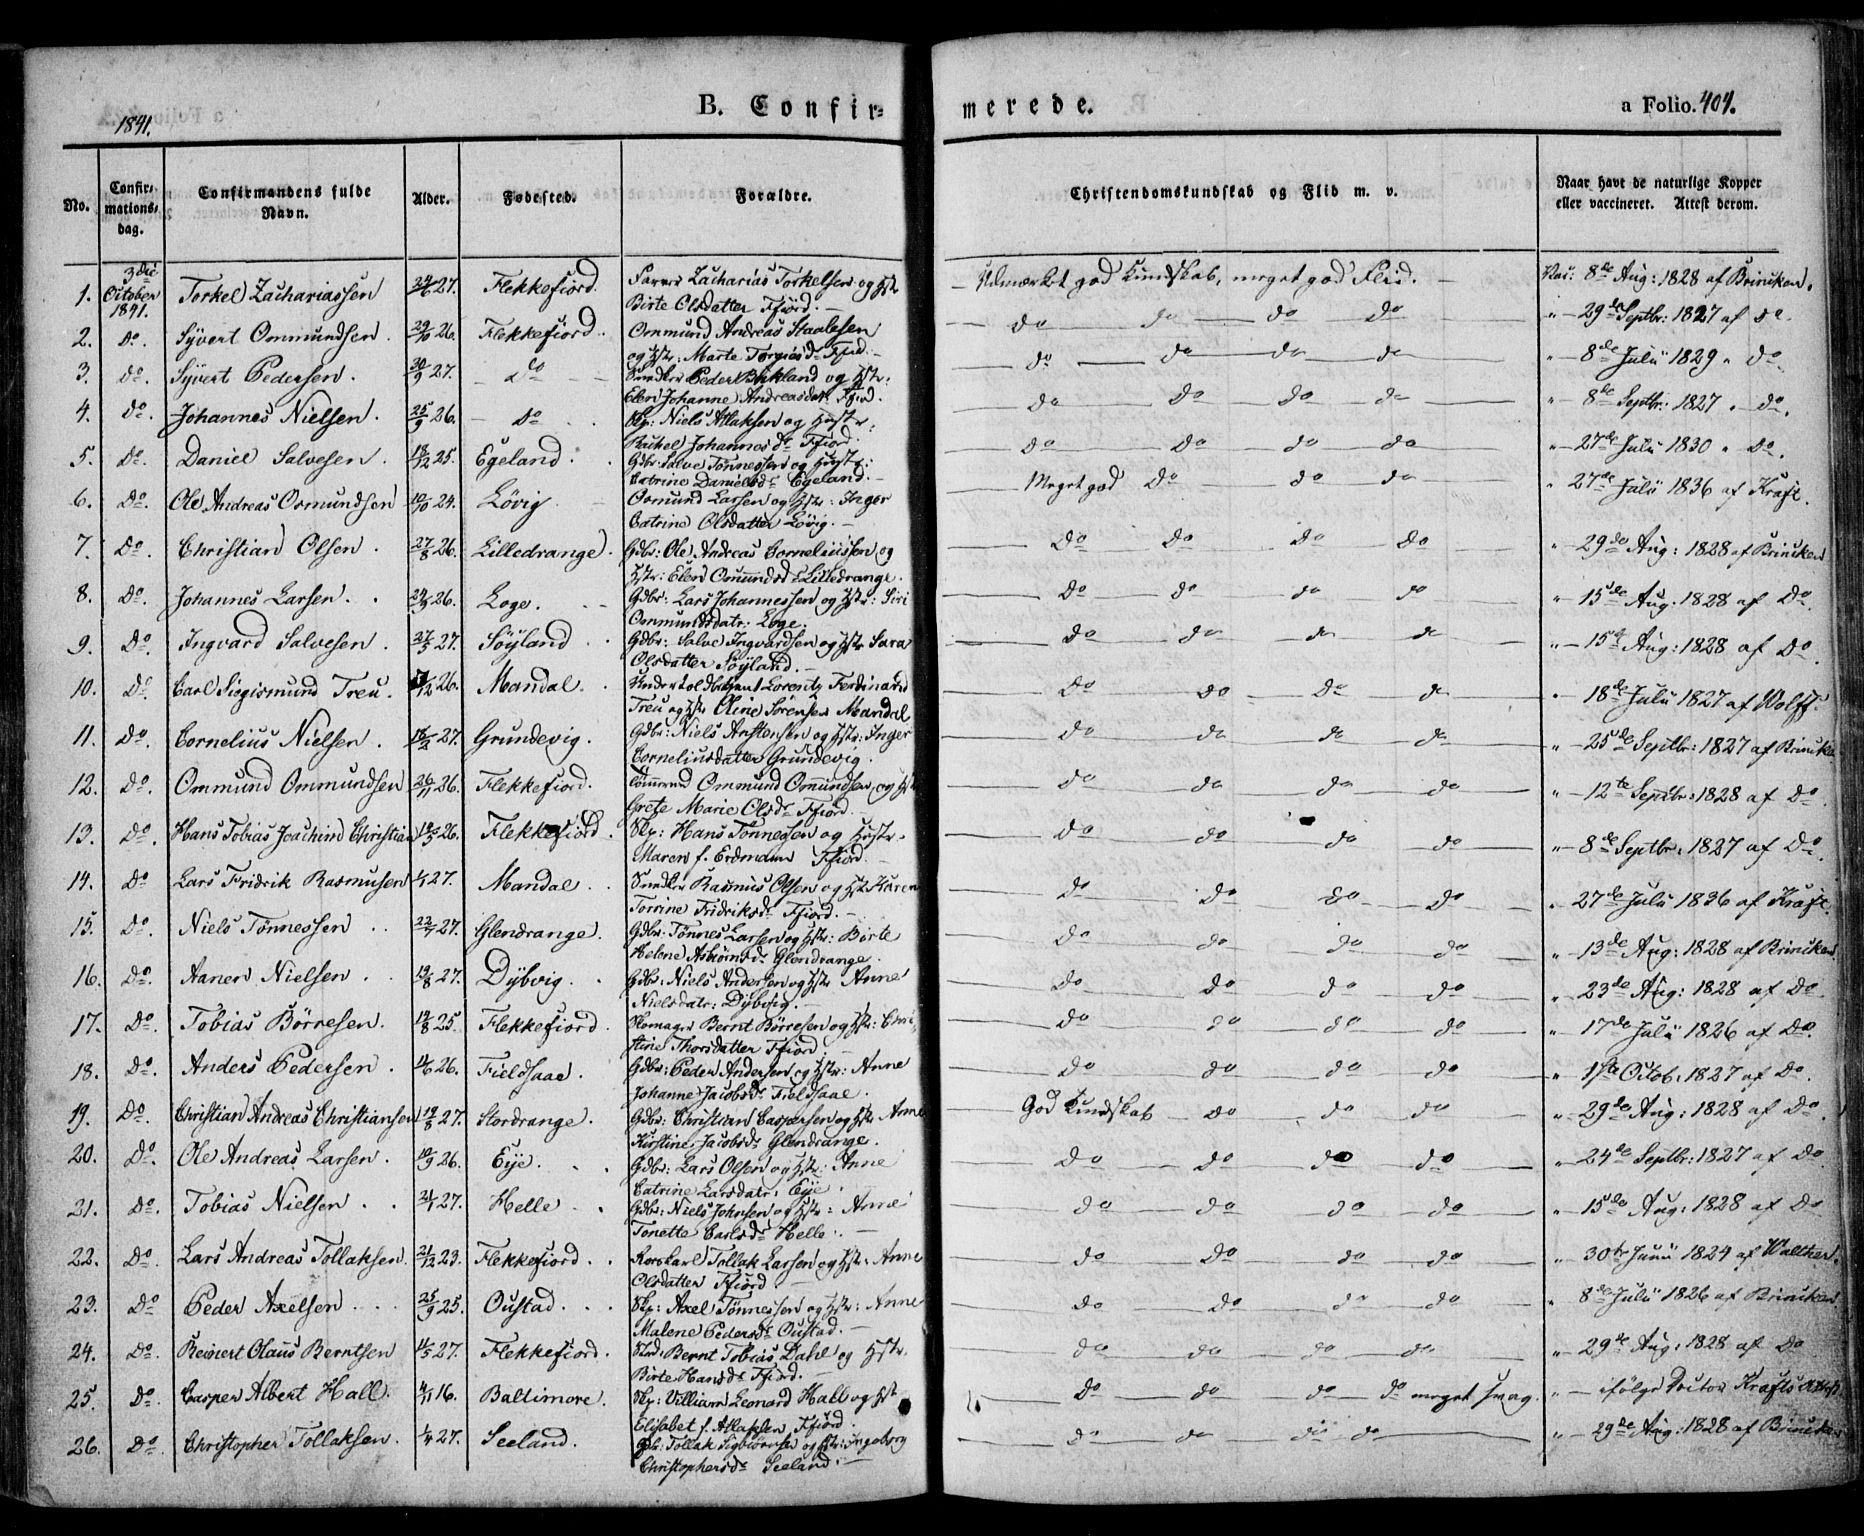 1841.
B. Confir-
merede.
a Folio. 404.
No.
Confir-
mations-
dag.
Confirmandens fulde
Navn.
Alder.
Fødested.
Forældre.
Christendomskundskab og Flid m. v.
Naar havt de naturlige Kopper
eller vaccineret. Attest derom.
1. 3die October 1841. Torkel Zachariassen 24/6 27. Flekkefiord. Farver Zacharias Torkelsen og Hstr Udmærket god Kundskab, meget god Flid. Vac: 8de Aug: 1828 af Brincken.
Birte Olsdatter Ffiord.
2. Do. Syvert Ommundsen. 29/10 26. Flekkefiord. Ommund Andreas Staalesen do do do do " 29de Septbr: 1827 af do.
og Hstr: Marte Torgiusdr Ffiord.
3. Do. Syvert Pedersen. 30/9 27. do Snedker Peder Birkland og Hstr: do do do do " 8de Julii 1829 " do
Elen Johanne Andreasdatr Ffiord.
4. Do. Johannes Nielsen. 25/9 26. Do Skp: Niels Atlaksen og Hustr: do do do do " 8de Septbr: 1827 " do.
Rachel Johannesdr Ffiord.
5. Do. Daniel Salvesen. 18/12 25. Egeland. Gdbr: Salve Tønnessen og Hustr: do do do do " 27de Julii 1830 " do.
Catrine Danielsdr Egeland.
6. Do. Ole Andreas Osmundsen 10/10 24. Løvig Osmund Larsen og Hstr: Inger Meget god do do do " 27de Julii 1836 af Kraft.
Catrine Olsdatter Løvig.
7. Do. Christian Olsen. 27/8 26. Lilledrange. Gdbr: Ole Andreas Corneliussen og do do do do " 29de Aug: 1828 af Brincken
Hstr: Elen Omundsdr Lilledrange.
8. Do. Johannes Larsen. 26. Loge. Gdbr: Lars Johannessen og Hstr: Siri do do do do " 15de Aug: 1828 af Do.
Ommundsdatr: Loge.
9. Do. Ingvard Salvesen. 27/5 27. Søyland Gdbr: Salve Ingvardsen og Hstr Sara do do do do " 15de Aug: 1828 af Do
Olsdatter Søyland.
10. Do. Carl Siegismund Treu. 26. Mandal. Lorentz Ferdinand do do do do " 18de Julii 1827 af Wolff.
Treu og Hstr Oline Sørensen Mandal
11. Do. Cornelius Nielsen. 16/2 27. Grundevig. Gdbr: Niels Anstensen og Hstr: Inger do do do do " 25de Septbr: 1827 af Brincken
Corneliusdatter Grundevig.
12. Do. Ommund Ommundsen 26/11 26. Flekkefiord. Tømmermd Ommund Ommundsen og Hstr do do do do " 12te Septbr: 1828 af Do.
Grete Marie Olsdr Ffiord.
13. Do. Hans Tobias Joachim Christian 26. Flekkefiord. Skp: Hans Tønnessen og Hustr. do do do do " 8de Septbr: 1827 af Do.
Maren f. Erdmann Ffiord.
14. Do Lars Fridrik Rasmusen 27. Mandal. Snedker Rasmus Olsen og Hstr Karen do do do do " 27de Julii 1836 af Kraft.
Torrine Fridriksdr Ffiord.
15. Do. Niels Tønnessen 22/7 27. Glendrange. Gdbr: Tønnes Larsen og Hstr: Birte do do do do " 13de Aug: 1828 af Brincken
Helene Asbiørnsdr Glendrange.
16. Do. Aanen Nielsen 19/8 27. Dybvig. Gdbr: Niels Andersen og Hstr Anne do do do do " 23de Aug: 1828 af Do.
Nielsdatr: Dybvig.
17. Do. Tobias Børresen. 19/8 25. Flekkefiord. Skomager Bernt Børresen og Hstr: Chri- do do do do " 17de Julii 1826 af Do.
stine Thorsdatter Ffiord.
18. Do. Anders Pedersen. 14/6 26. Fieldsaae. Gdbr: Peder Andersen og Hstr: Anne do do do do " 17de Octob: 1827 af Do.
Johanne Jacobsdr Fieldsaae.
19. Do. Christian Andreas Christiansen 19/8 27. Stordrange. Gdbr: Christian Caspersen og Hstr Anne God Kundskab do do do " 29de Aug: 1828 af Do.
Kirstine Jacobsdr Glendrange.
20. Do. Ole Andreas Larsen. 10/9 26. Eije. Gdbr: Lars Olsen og Hstr: Anne do do do do " 24de Septbr: 1827 af Do
Catrine Larsdatr: Eije.
21. Do. Tobias Nielsen. 21/1 27. Helle. Gdbr: Niels Johnsen og Hstr: Anne do do do do " 15de Aug: 1828 af Do
Tonette Carlsdr Helle.
22. Do. Lars Andreas Tollaksen. 21/12 23. Flekkefiord. Tollak Larsen og Hstr: Anne do do do do " 30te Junii 1824 af Walther.
Olsdatter Ffiord
23. Do Peder Axelsen. 25/9 25. Oustad. Skp: Axel Tønnessen og Hstr: Anne do do do do " 8de Julii 1826 af Brincken
Malene Pedersdr Oustad.
24. Do. Reinert Olaus Berntsen 11/5 27. Flekkefiord. Bernt Tobias Dahl og Hstr. do do do do " 29de Aug: 1828 af Do
Birte Hansdr Ffiord.
25. Do. Casper Albert Hall. 4/1 16. Baltimore. Skp: Villiam Leonard Hall og Hst do do do do meget svag. " ifølge Doctor Krafts Attest
Elisabet f. Atlaksen Ffiord.
26. Do. Christopher Tollaksen. 1/4 27. Seeland. Gb: Tollak Sigbiørnsen og Hstr: Ingeborg do do do do " 29de Aug: 1828 af Brincken
Christophersdr Seeland.